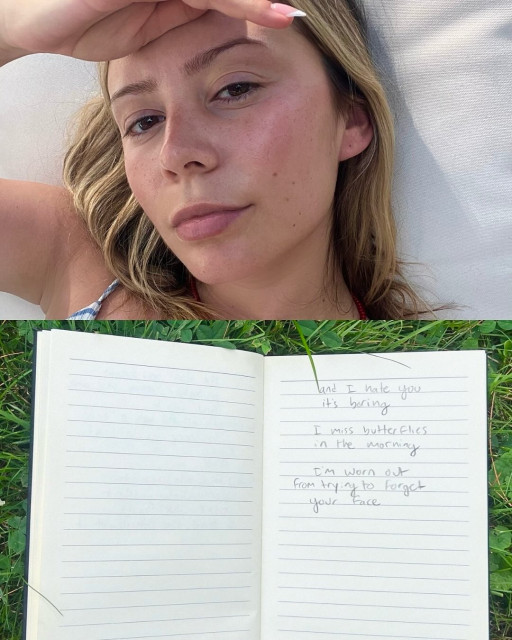 and I hate you
it's boring
I miss butterflies
in the morning
I'm worn out
from trying to forget
your face